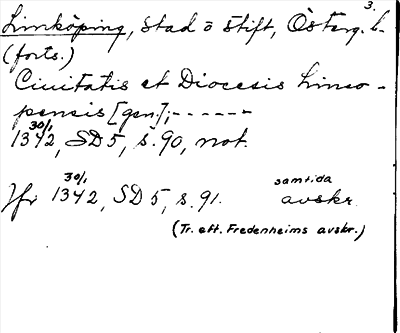 3.
Linköping, stad o stift, Österg. b.
(forts.)
Ciuitatis et Diocesis Linco-
pensis [gen.], - - - - - -
30/1
1342, SD 5, s. 90, not.
30/1 samtida
Jfr 1342, SD 5, s. 91. avskr.
(Tr. eft. Fredenheims avskr.)